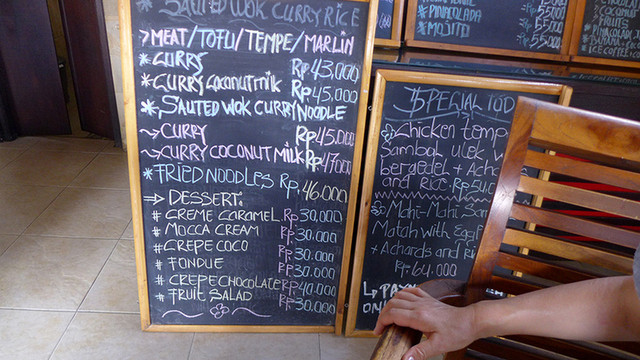 SAUTED WOK CURRY RICE
>MEAT/TOFU/TEMPE/MARLIN
*CURRY Rp 43,000
*CURRY COCONUT MILK Rp 45,000
*SAUTED WOK CURRY NOODLE
~>CURRY Rp 45.000
~>CURRY COCONUT MILK Rp 47000
*FRIED NOODLES Rp, 46.000
=> DESSERT:
# CREME CARAMEL Rp 30,000
# MOCCA CREAM Rp. 30.000
# CREPE COCO Rp 30.000
# FONDUE Rp 30.000
# CREPE CHOCOLATE Rp 40.000
# FRUIT SALAD Rp. 30.000
SPECIAL TOD
Chicken tempe
Sambal ulek w
bergedel + Acha
and Rice Rp 50.0
Mahi-Mahi Sam
Matah with Egg
+ Achards and Ri
Rp 64.000
* PINACOLADA
* MOJITO
55.000